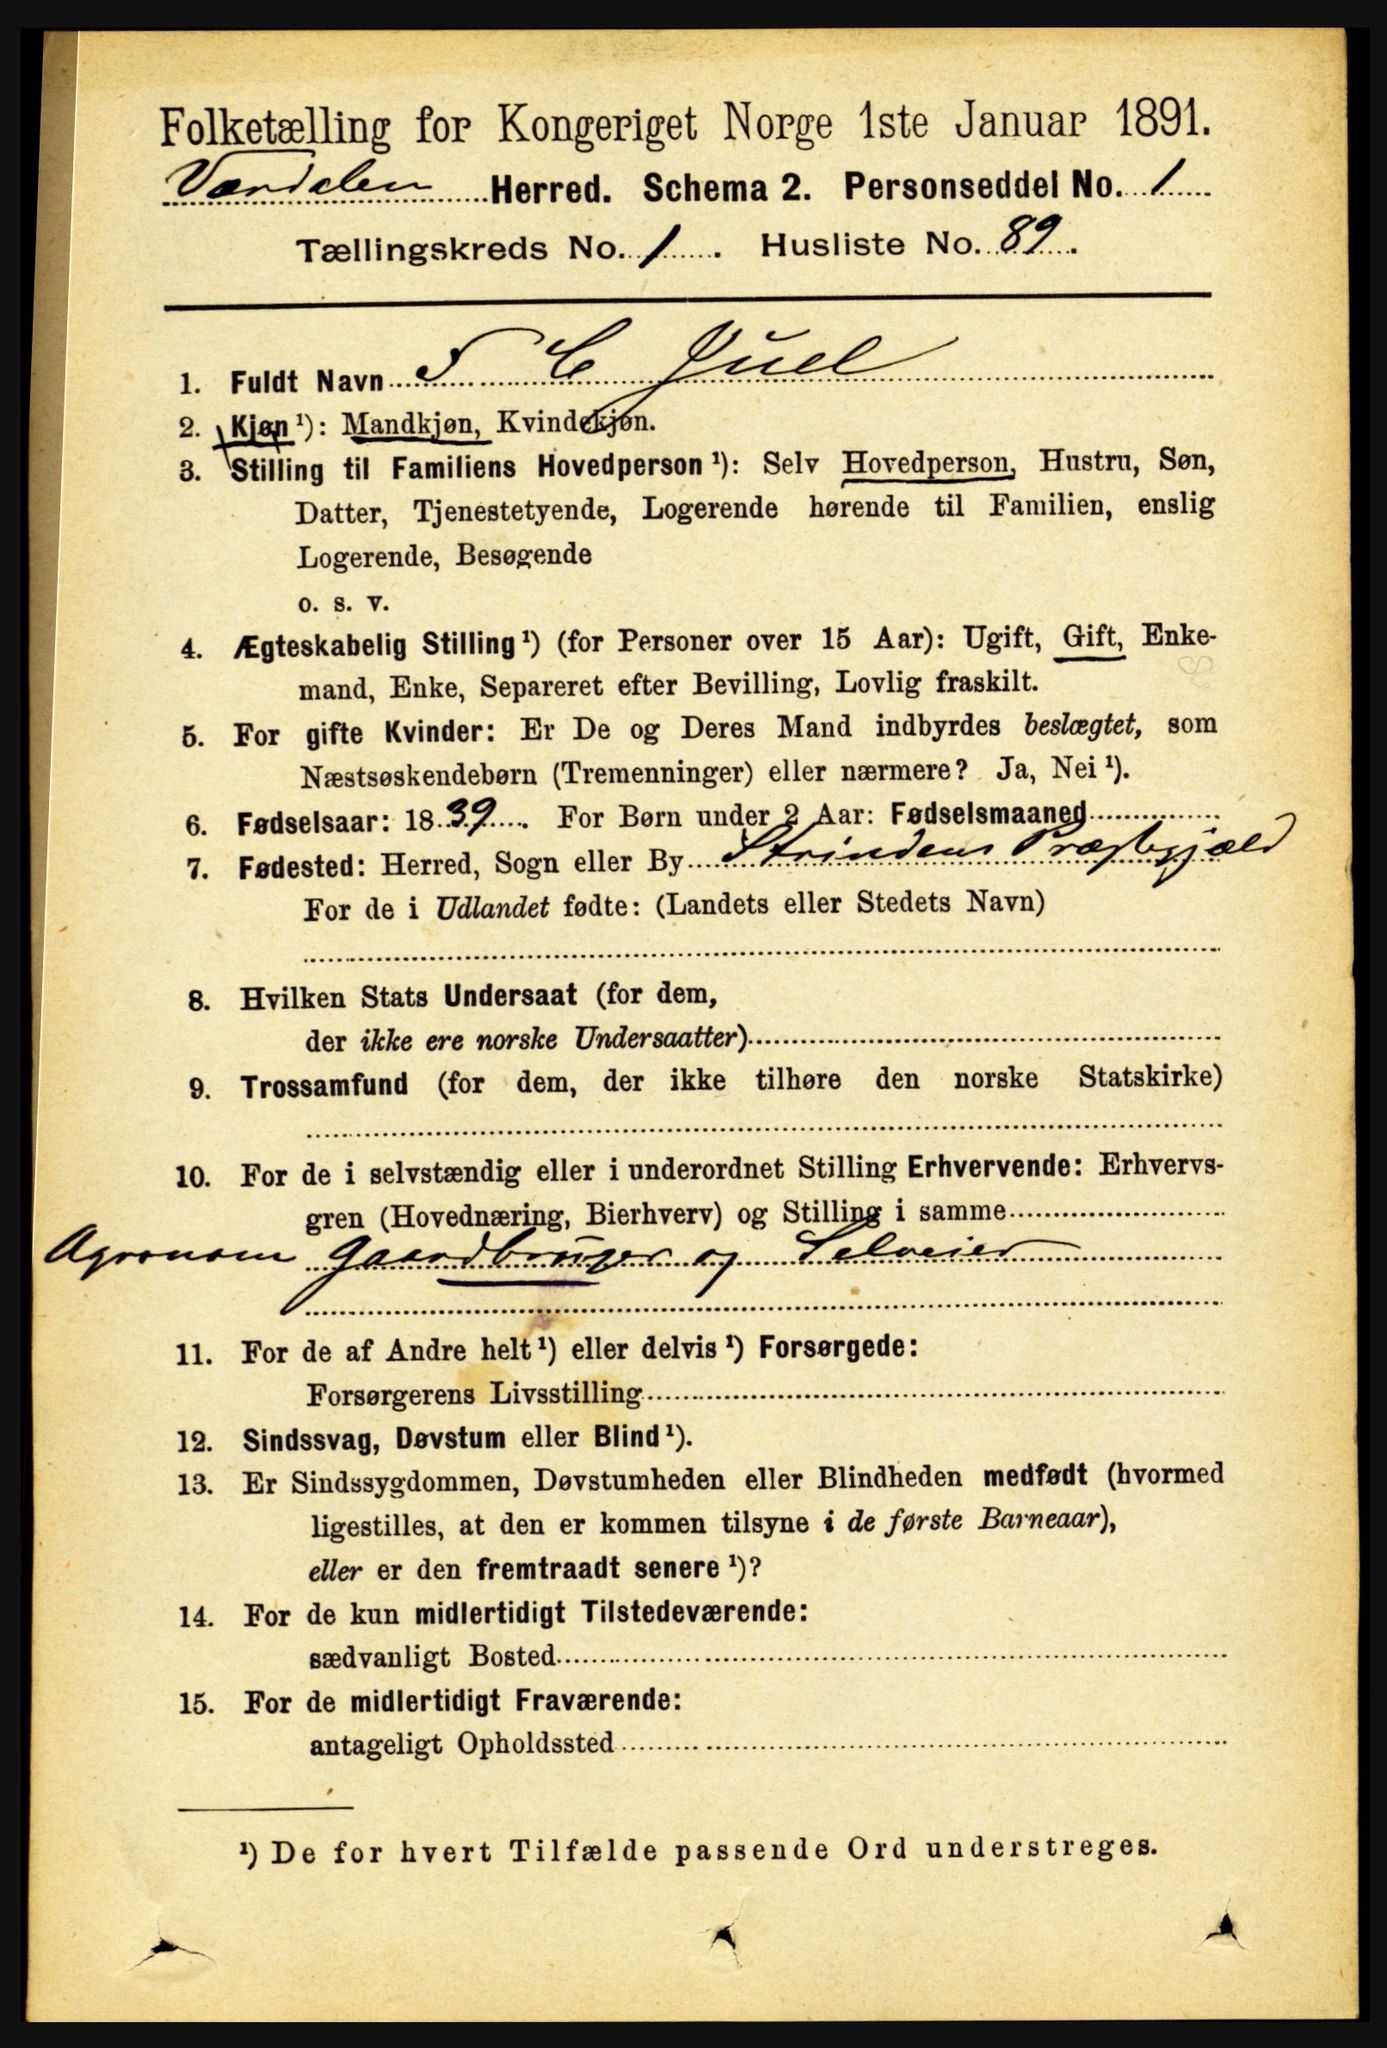 Folketælling for Kongeriget Norge 1ste Januar 1891.
Værdalen Herred. Schema 2. Personseddel No. 1
Tællingskreds No. 1. Husliste No. 89.
1. Fuldt Navn F C Juel
2. Kjøn¹): Mandkjøn, Kvindekjøn.
3. Stilling til Familiens Hovedperson¹): Selv Hovedperson, Hustru, Søn,
Datter, Tjenestetyende, Logerende hørende til Familien, enslig
Logerende, Besøgende
o. s. v.
4. Ægteskabelig Stilling¹) (for Personer over 15 Aar): Ugift, Gift, Enke-
mand, Enke, Separeret efter Bevilling, Lovlig fraskilt.
5. For gifte Kvinder: Er De og Deres Mand indbyrdes beslægtet, som
Næstsøskendebørn (Tremenninger) eller nærmere? Ja, Nei¹).
6. Fødselsaar: 1839. For Børn under 2 Aar: Fødselsmaaned
7. Fødested: Herred, Sogn eller By Strindens Præstegjæld
For de i Udlandet fødte: (Landets eller Stedets Navn)
8. Hvilken Stats Undersaat (for dem,
der ikke ere norske Undersaatter)
9. Trossamfund (for dem, der ikke tilhøre den norske Statskirke)
10. For de i selvstændig eller i underordnet Stilling Erhvervende: Erhvervs-
gren (Hovednæring, Bierhverv) og Stilling i samme
Agronom Gaardbruger og Selveier
11. For de af Andre helt¹) eller delvis¹) Forsørgede:
Forsørgerens Livsstilling
12. Sindssvag, Døvstum eller Blind¹).
13. Er Sindssygdommen, Døvstumheden eller Blindheden medfødt (hvormed
ligestilles, at den er kommen tilsyne i de første Barneaar),
eller er den fremtraadt senere¹)?
14. For de kun midlertidigt Tilstedeværende:
sædvanligt Bosted
15. For de midlertidigt Fraværende:
antageligt Opholdssted
¹) De for hvert Tilfælde passende Ord understreges.